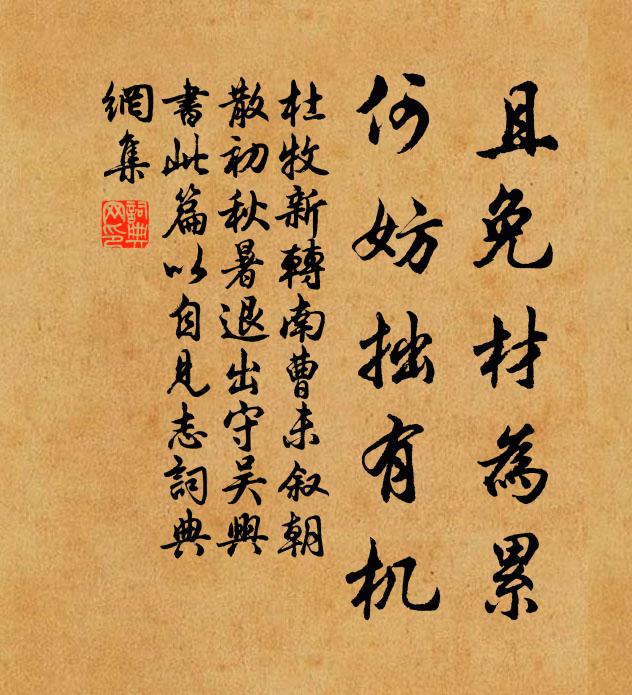 且免材為累
何妨拙有机
杜牧新轉南曹未叙朝
散初秋暑退出守吴興
書此篇以自見志詞典
網集
詞典
网印